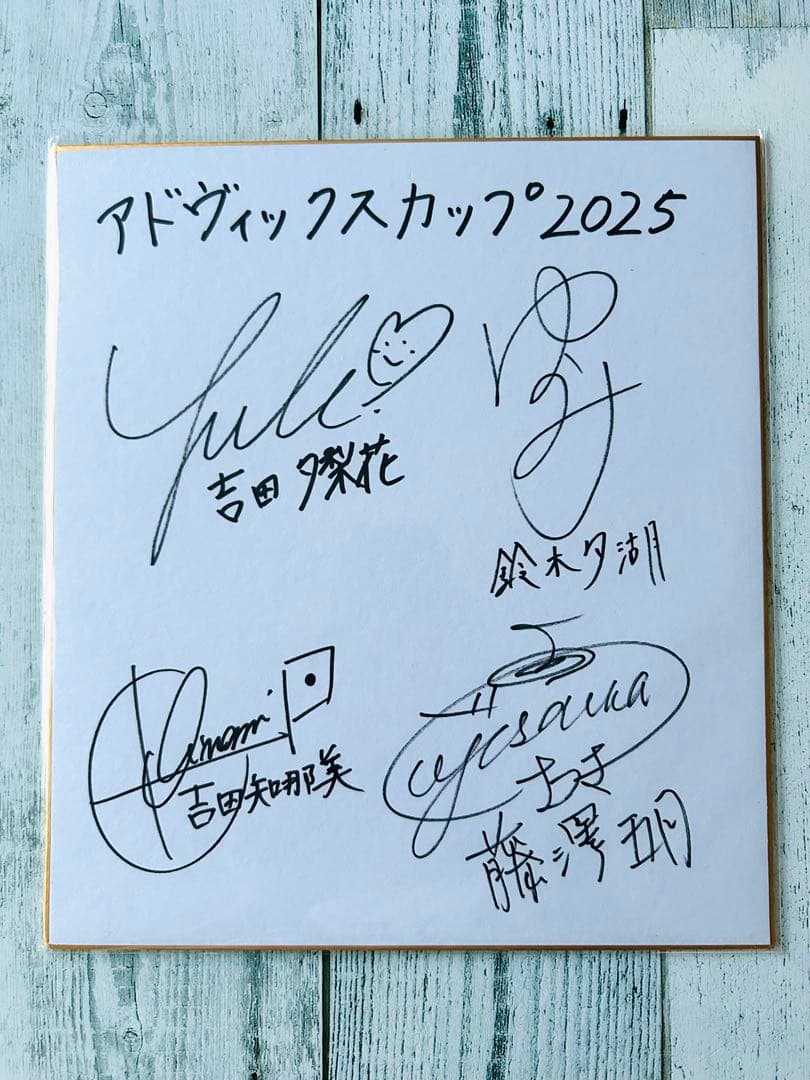 アドヴィックスカップ2025
Yuli
吉田夕梨花
ゆうみ
鈴木夕湖
Chinami
吉田知那美
Fujisawa
さつき
藤澤五月